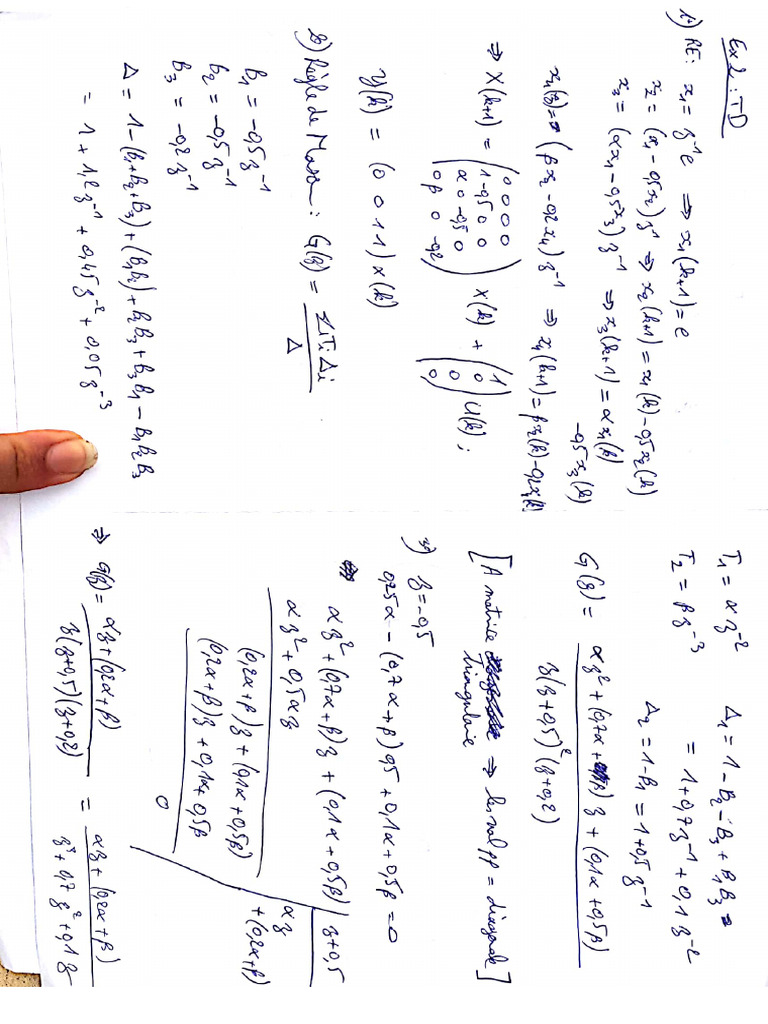 Ex 2 : TD
1°) RE: x₁ = z⁻¹e ⇒ x₁(k+1) = e
x₂ = (x₁ - 0,5x₂) z⁻¹ ⇒ x₂(k+1) = x₁(k) - 0,5x₂(k)
x₃ = (αx₁ - 0,5x₃) z⁻¹ ⇒ x₃(k+1) = αx₁(k)
-0,5x₃(k)
x₄(z) = (βx₂ - 0,2x₄) z⁻¹ ⇒ x₄(k+1) = βx₂(k) - 0,2x₄(k)
⇒ X(k+1) = (0 0 0 0
1 -0,5 0 0
α 0 -0,5 0
0 β 0 -0,2) X(k) + (1
0
0
0) U(k) ;
y(k) = (0 0 1 1) x(k)
2°) Règle de Mason : G(z) = ΣTᵢΔᵢ
Δ
B₁ = -0,5z⁻¹
B₂ = -0,5z⁻¹
B₃ = -0,2z⁻¹
Δ = 1 - (B₁+B₂+B₃) + (B₁B₂) + B₂B₃ + B₃B₁ - B₁B₂B₃
= 1 + 1,2z⁻¹ + 0,45z⁻² + 0,05z⁻³
T₁ = αz⁻² Δ₁ = 1 - B₂ - B₃ + B₁B₃ =
= 1 + 0,7z⁻¹ + 0,1z⁻²
T₂ = βz⁻³ Δ₂ = 1 - B₁ = 1 + 0,5z⁻¹
G(z) = αz² + (0,7α + β) z + (0,1α + 0,5β)
z(z+0,5)² (z+0,2)
[A matrice ⇒ les val pp = diagonale]
triangulaire
3°) z = -0,5
0,25α - (0,7α + β) 0,5 + 0,1α + 0,5β = 0
αz² + (0,7α + β) z + (0,1α + 0,5β) | z + 0,5
αz² + 0,5αz αz
+ (0,2α + β)
(0,2α + β) z + (0,1α + 0,5β)
(0,2α + β) z + 0,1α + 0,5β
0
⇒ G(z) = αz + (0,2α + β) = αz + (0,2α + β)
z(z+0,5)(z+0,2) z³ + 0,7z² + 0,1z